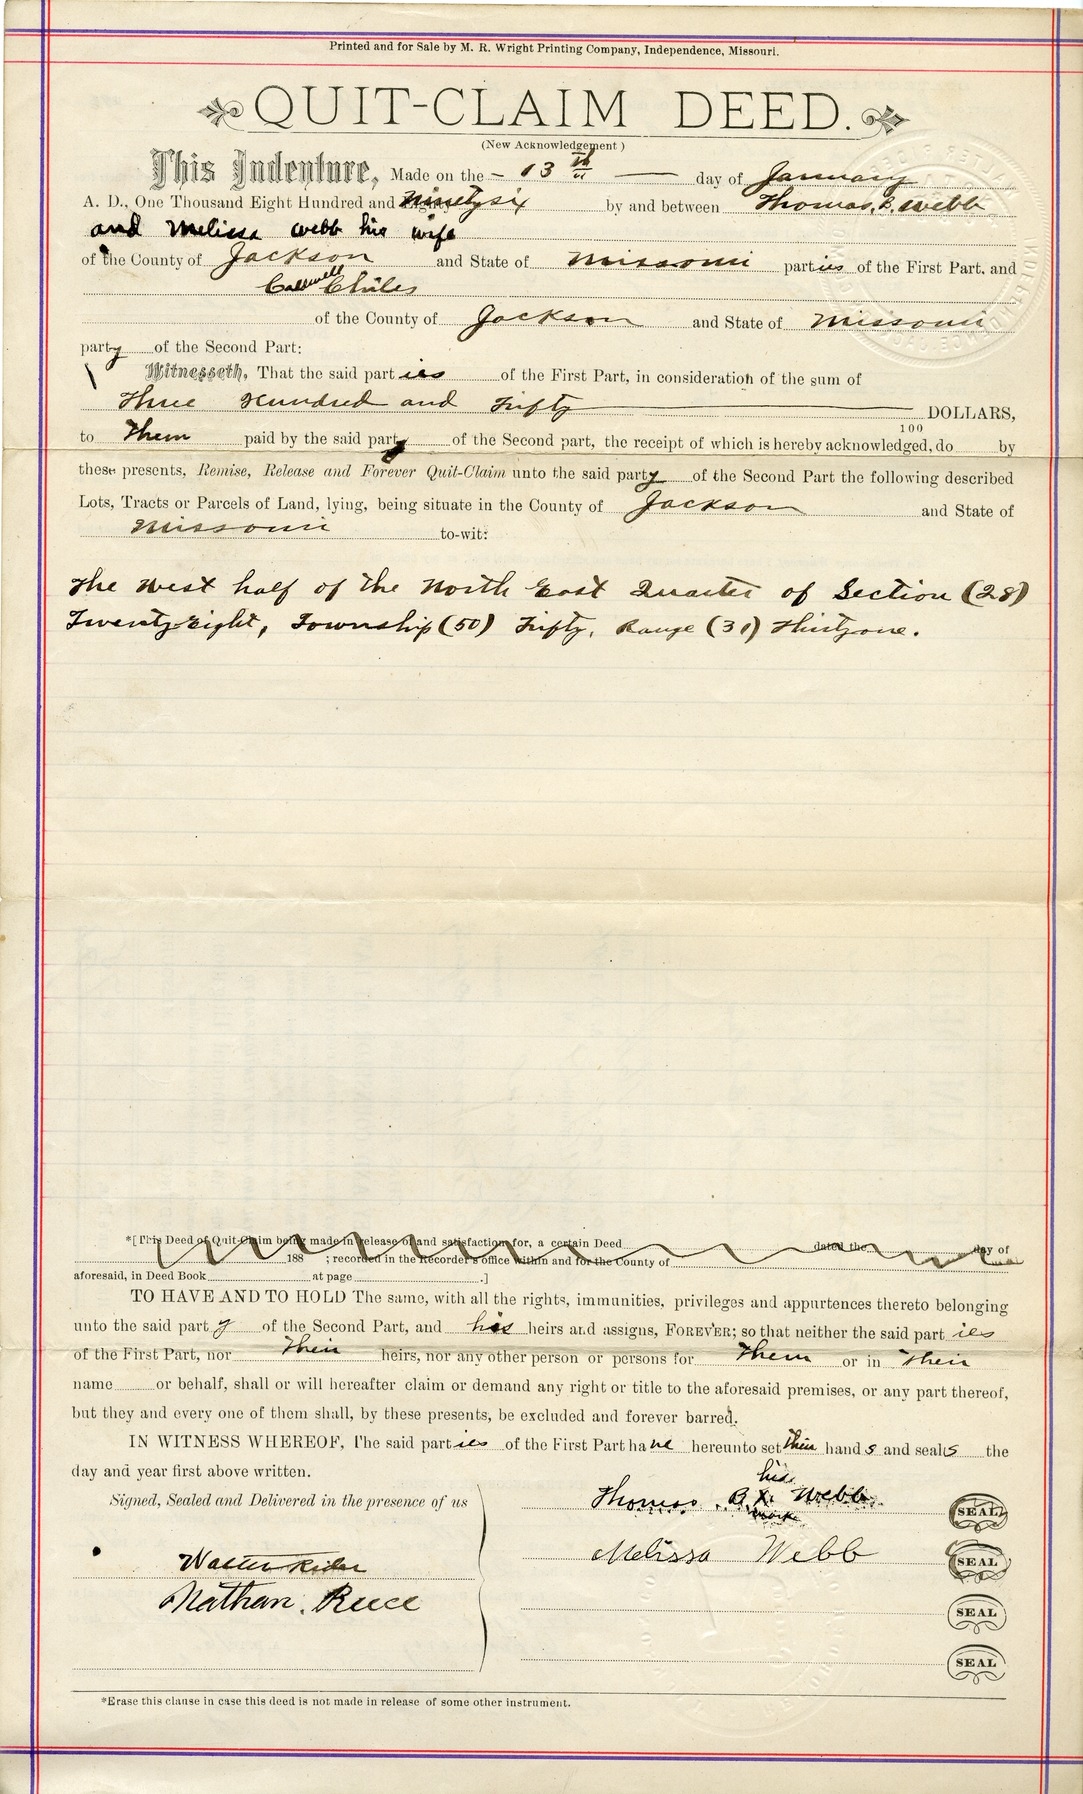 Printed and for Sale by M. R. Wright Printing Company, Independence, Missouri.
QUIT-CLAIM DEED.
(New Acknowledgement)
This Indenture, Made on the - 13th — day of January
A. D., One Thousand Eight Hundred and Ninety six by and between Thomas, B. Webb
and Melissa Webb his wife
of the County of Jackson and State of Missouri parties of the First Part, and
Caldwell Chiles
of the County of Jackson and State of Missouri
party of the Second Part:
Witnesseth, That the said parties of the First Part, in consideration of the sum of
Three Hundred and Fifty — DOLLARS,
100
to Them paid by the said party of the Second part, the receipt of which is hereby acknowledged, do by
these presents, Remise, Release and Forever Quit-Claim unto the said party of the Second Part the following described
Lots, Tracts or Parcels of Land, lying, being situate in the County of Jackson and State of
Missouri to-wit:
The West half of the North East Quarter of Section (28)
Twenty Eight, Township (50) Fifty, Range (31) Thirty one.
*[This Deed of Quit-Claim being made in release of and satisfaction for, a certain Deed dated the day of
188 ; recorded in the Recorder's office within and for the County of
aforesaid, in Deed Book at page .]
TO HAVE AND TO HOLD The same, with all the rights, immunities, privileges and appurtences thereto belonging
unto the said party of the Second Part, and his heirs and assigns, FOREVER; so that neither the said parties
of the First Part, nor Their heirs, nor any other person or persons for Them or in Their
name or behalf, shall or will hereafter claim or demand any right or title to the aforesaid premises, or any part thereof,
but they and every one of them shall, by these presents, be excluded and forever barred.
IN WITNESS WHEREOF, The said parties of the First Part have hereunto set their hands and seals the
day and year first above written.
Signed, Sealed and Delivered in the presence of us
his
Thomas B. X Webb SEAL
mark
Melissa Webb SEAL
Walter Rider
Nathan. Reece SEAL
SEAL
*Erase this clause in case this deed is not made in release of some other instrument.